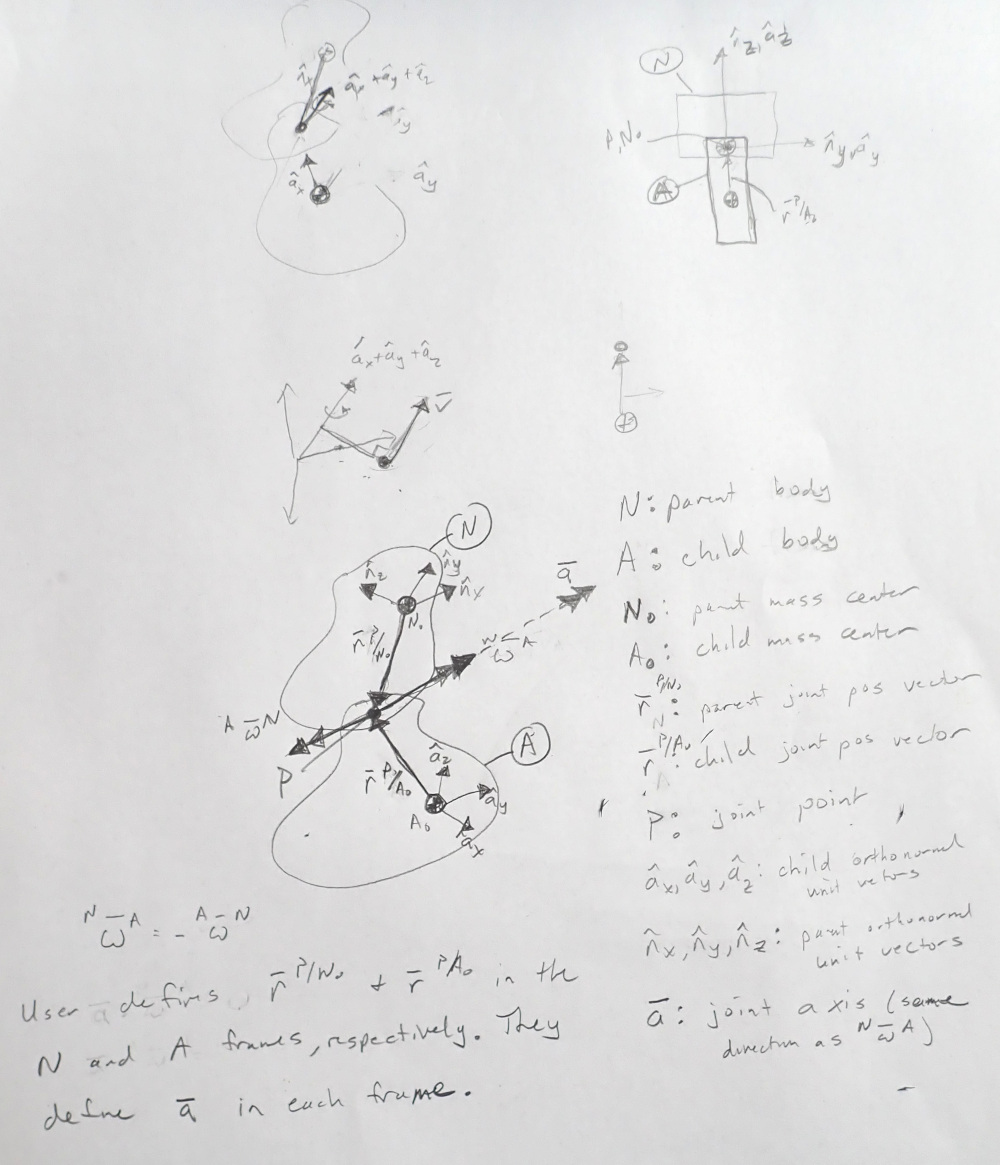 n̂x
âx + ây + âz
âx
ây
N
n̂z, âz
P, No
n̂y, ây
A
r̄^P/Ao
âx + ây + âz
v̄
N
n̂z
n̂y
n̂x
No
r̄^P/No
ā
^N ω̄ ^A
^A ω̄ ^N
P
r̄^P/Ao
A
âz
ây
Ao
âx
N: parent body
A: child body
No: parent mass center
Ao: child mass center
r̄^P/No: parent joint pos vector
r̄^P/Ao: child joint pos vector
P: joint point
âx, ây, âz: child orthonormal
unit vectors
n̂x, n̂y, n̂z: parent orthonormal
unit vectors
ā: joint axis (same
direction as ^N ω̄ ^A)
^N ω̄ ^A = - ^A ω̄ ^N
User defines r̄^P/No + r̄^P/Ao in the
N and A frames, respectively. They
define ā in each frame.